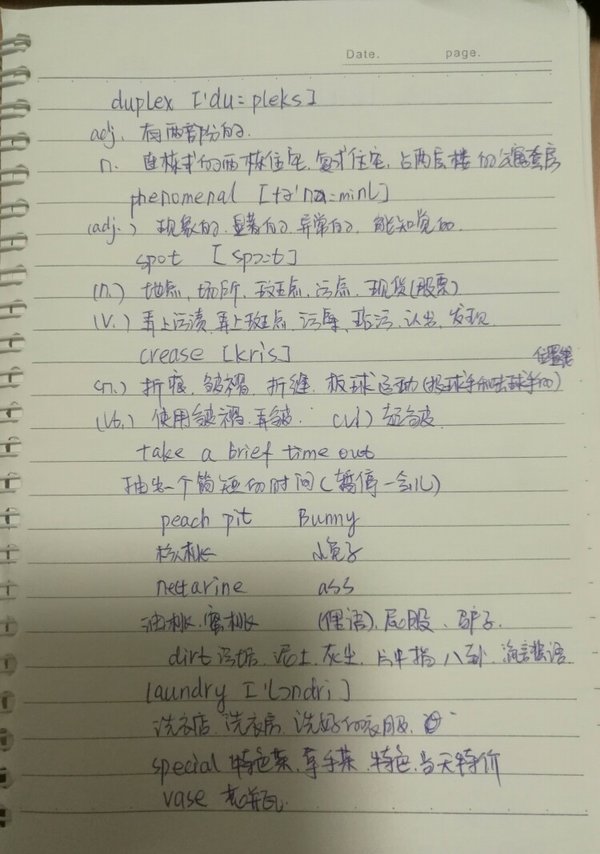 Date. page.
duplex ['du=pleks]
adj. 有两部份的.
n. 连栋式的两栋住宅.复式住宅.占两层楼的公寓套房
phenomenal [fə'na=minl]
(adj.) 现象的.显著的.异常的.能知觉的.
spot [spɔ=t]
(n.) 地点.场所.斑点.污点.现货(股票)
(v.) 弄上污渍.弄上斑点.污辱.玷污.认出.发现
crease [kris] 位置线
(n.) 折痕.皱褶.折缝.板球运动(投球手和击球手的)
(vt.) 使用皱褶.弄皱. (vi) 起皱
take a brief time out
抽出一个简短的时间(暂停一会儿)
peach pit Bunny
核桃 小兔子
nectarine ass
油桃.蜜桃 (俚语).屁股.驴子.
dirt 污垢.泥土.灰尘.片中指八卦.流言蜚语
laundry ['lɔndri]
洗衣店.洗衣房.洗好的衣服.
special 特色菜.拿手菜.特色.当天特价
vase 花瓶.